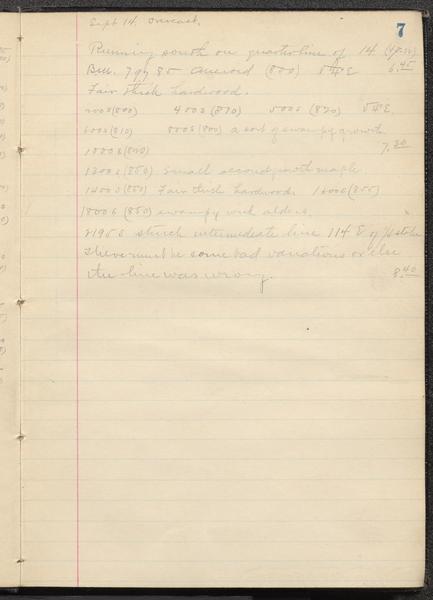 Sept 14. Overcast. 7
Running south on quarterline of 14 (47-36)
Bu. 7 99 85 Aneroid (800) 5° E 6.45
Fair thick hardwood.
200 S (800) 400 S (870) 500 S (820) 5° E.
600 S (810) 800 S (800) a sort of swampy growth
1000 S (840) 7.30
1300 S (850) Small second growth maple
1400 S (850) Fair thick hardwoods 1600 S (855)
1800 S (850) swampy with alders.
2195 S struck intermediate line 114 E of 1/4 stake
There must be some bad variations or else
the line was wrong. 8.40